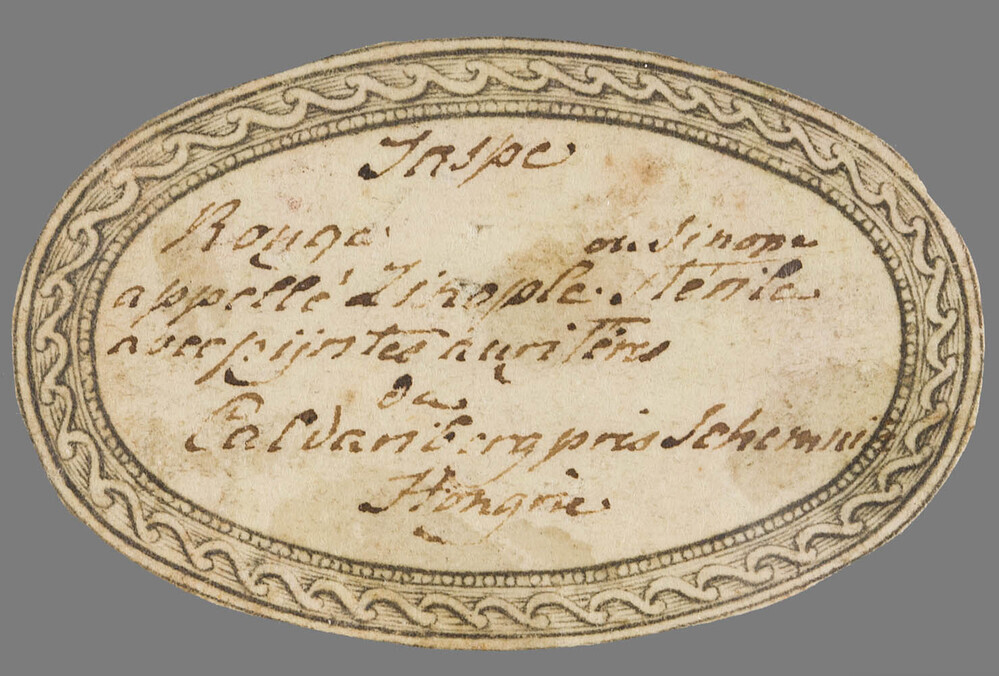 Jaspe
Rouge ou Sinope
appellé Zinople Sterile
avec pijrites auriféres
du
Calvariberg pris Schemniz
Hongrie